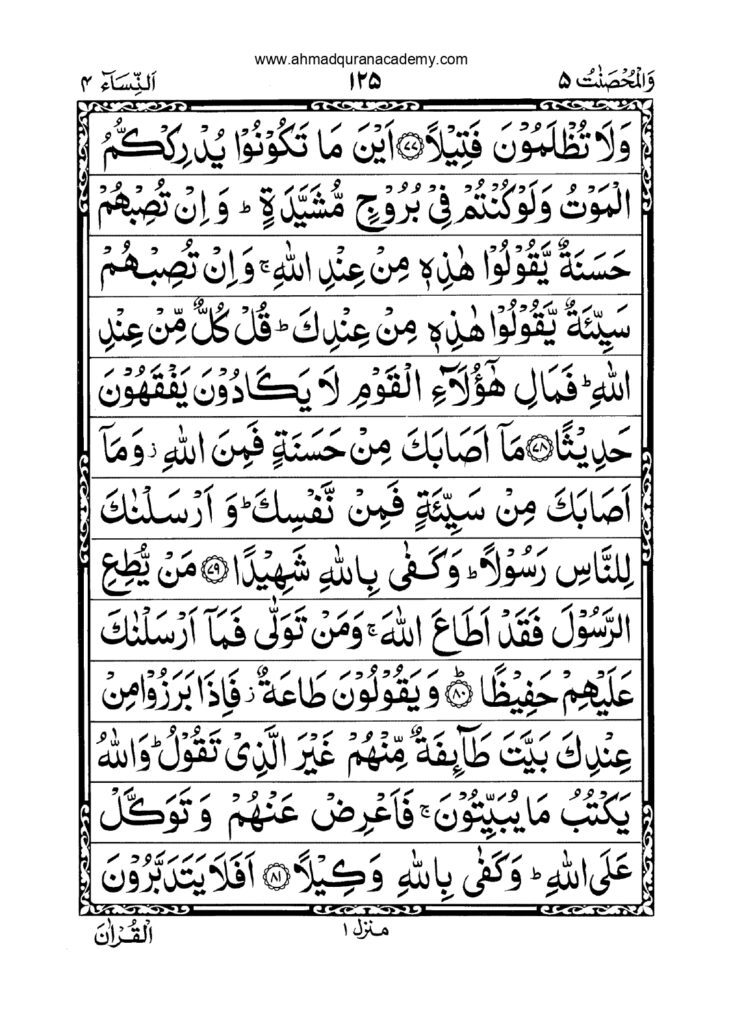 www.ahmadquranacademy.com
وَالْمُحْصَنٰتُ ۵ ۱۲۵ اَلنِّسَآء ۴
وَلَا تُظْلَمُوْنَ فَتِيْلًا ﴿۷۷﴾ اَيْنَ مَا تَكُوْنُوْا يُدْرِكْكُّمُ
الْمَوْتُ وَلَوْكُنْتُمْ فِيْ بُرُوْجٍ مُّشَيَّدَةٍ ؕ وَاِنْ تُصِبْهُمْ
حَسَنَةٌ يَّقُوْلُوْا هٰذِهٖ مِنْ عِنْدِ اللّٰهِ ۚ وَاِنْ تُصِبْهُمْ
سَيِّئَةٌ يَّقُوْلُوْا هٰذِهٖ مِنْ عِنْدِكَ ؕ قُلْ كُلٌّ مِّنْ عِنْدِ
اللّٰهِ ؕ فَمَالِ هٰٓؤُلَآءِ الْقَوْمِ لَا يَكَادُوْنَ يَفْقَهُوْنَ
حَدِيْثًا ﴿۷۸﴾ مَآ اَصَابَكَ مِنْ حَسَنَةٍ فَمِنَ اللّٰهِ ز وَمَآ
اَصَابَكَ مِنْ سَيِّئَةٍ فَمِنْ نَّفْسِكَ ؕ وَ اَرْسَلْنٰكَ
لِلنَّاسِ رَسُوْلًا ؕ وَكَفٰى بِاللّٰهِ شَهِيْدًا ﴿۷۹﴾ مَنْ يُّطِعِ
الرَّسُوْلَ فَقَدْ اَطَاعَ اللّٰهَ ۚ وَمَنْ تَوَلّٰى فَمَآ اَرْسَلْنٰكَ
عَلَيْهِمْ حَفِيْظًا ﴿۸۰﴾ ؕ وَيَقُوْلُوْنَ طَاعَةٌ ز فَاِذَا بَرَزُوْا مِنْ
عِنْدِكَ بَيَّتَ طَآئِفَةٌ مِّنْهُمْ غَيْرَ الَّذِيْ تَقُوْلُ ؕ وَاللّٰهُ
يَكْتُبُ مَا يُبَيِّتُوْنَ ۚ فَاَعْرِضْ عَنْهُمْ وَتَوَكَّلْ
عَلَى اللّٰهِ ؕ وَكَفٰى بِاللّٰهِ وَكِيْلًا ﴿۸۱﴾ اَفَلَا يَتَدَبَّرُوْنَ
منزل ۱
الْقُرْاٰنَ